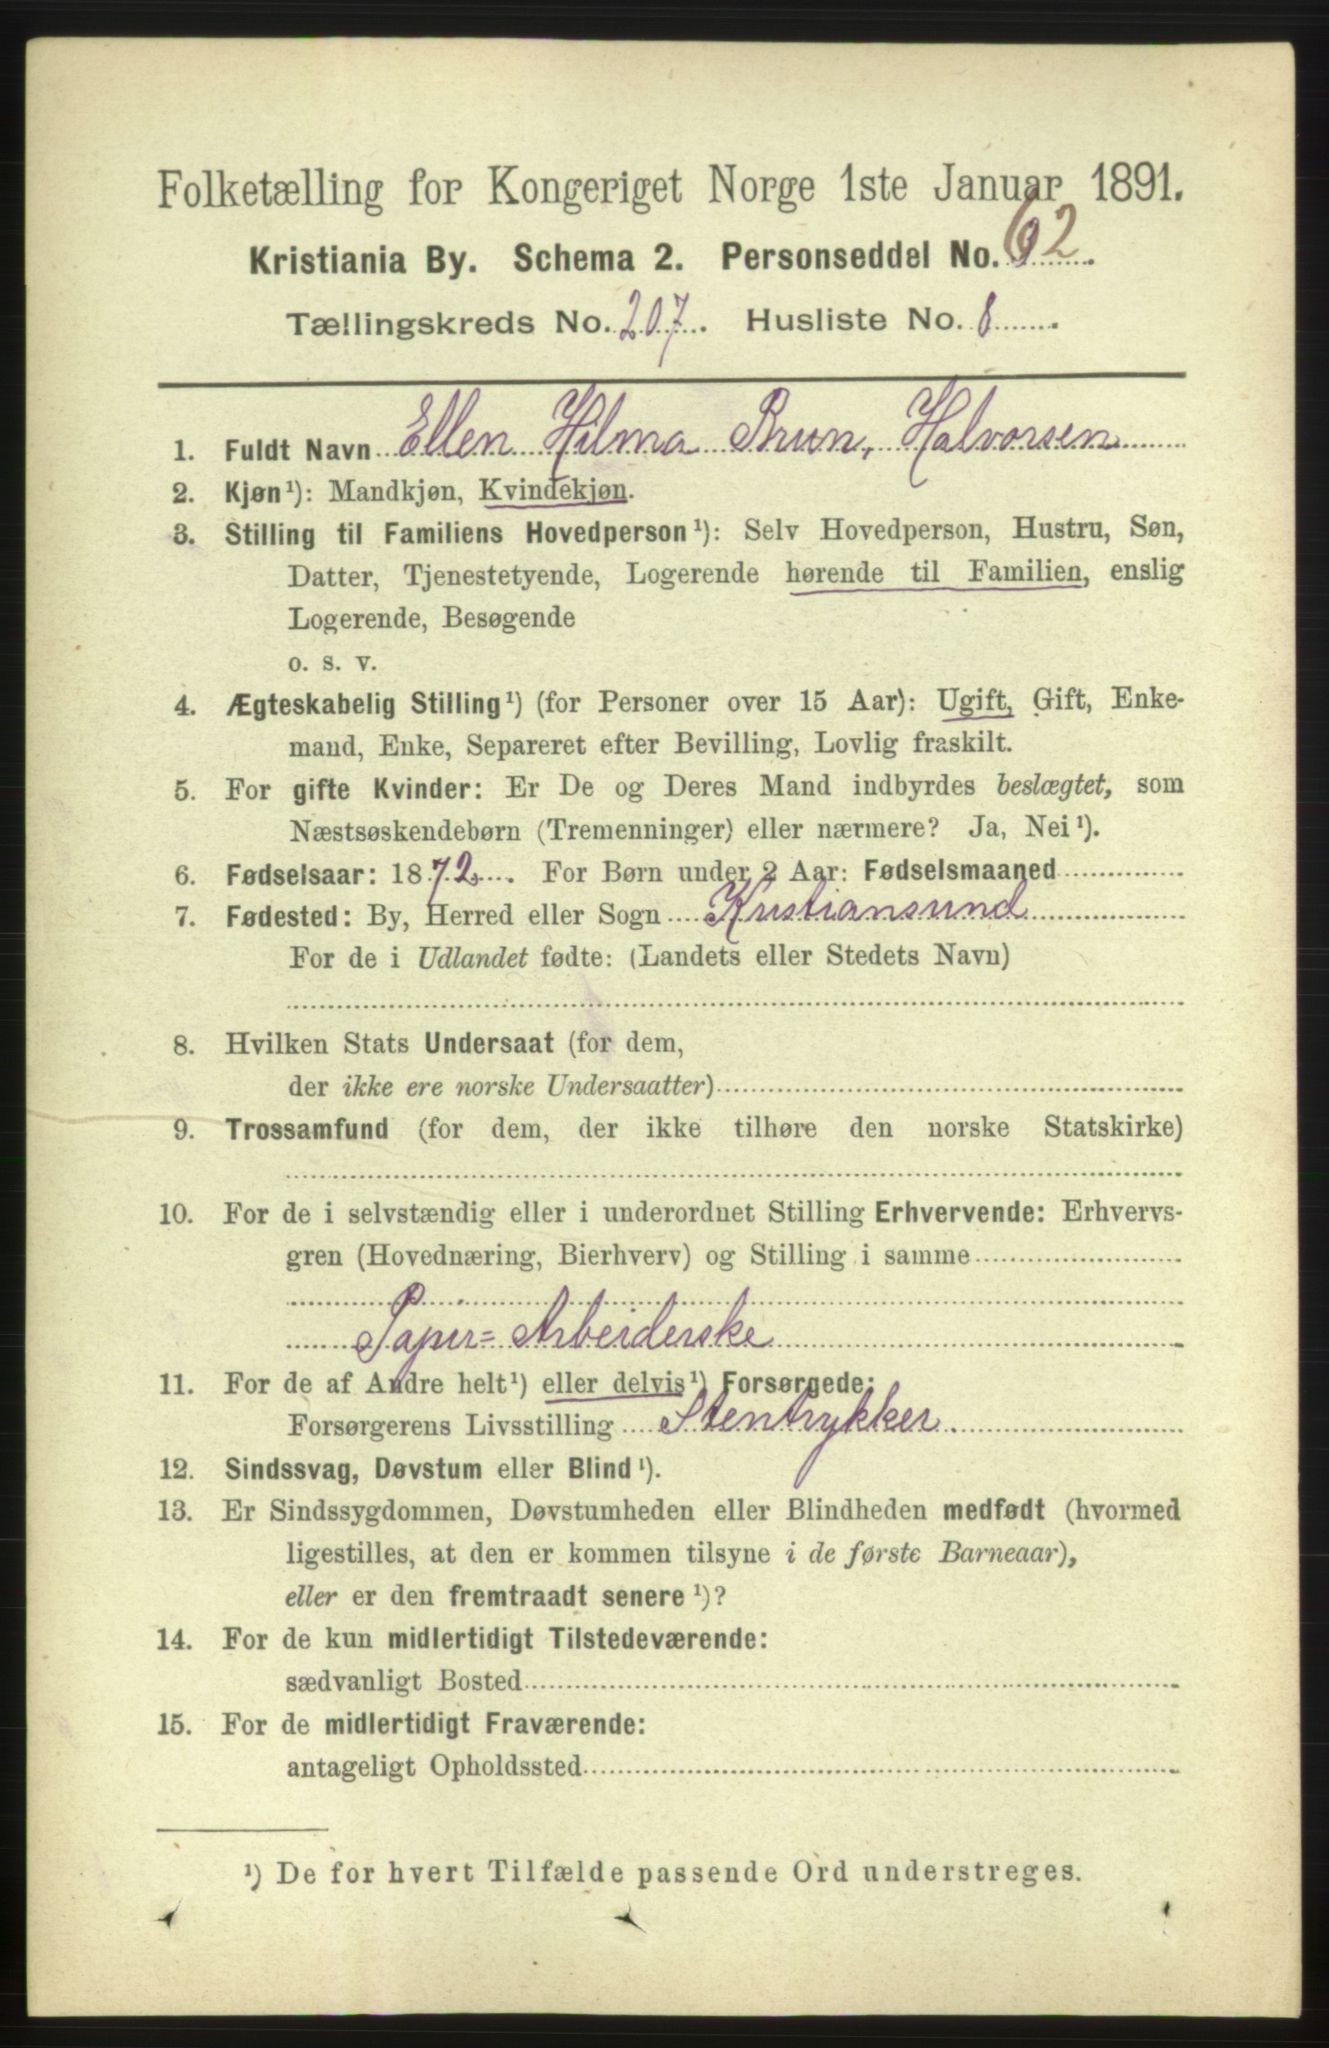 Folketælling for Kongeriget Norge 1ste Januar 1891.
Kristiania By. Schema 2. Personseddel No. 62
Tællingskreds No. 207. Husliste No. 8
1. Fuldt Navn Ellen Hilma Brun, Halvorsen
2. Kjøn¹): Mandkjøn, Kvindekjøn.
3. Stilling til Familiens Hovedperson¹): Selv Hovedperson, Hustru, Søn,
Datter, Tjenestetyende, Logerende hørende til Familien, enslig
Logerende, Besøgende
o. s. v.
4. Ægteskabelig Stilling¹) (for Personer over 15 Aar): Ugift, Gift, Enke-
mand, Enke, Separeret efter Bevilling, Lovlig fraskilt.
5. For gifte Kvinder: Er De og Deres Mand indbyrdes beslægtet, som
Næstsøskendebørn (Tremenninger) eller nærmere? Ja, Nei¹).
6. Fødselsaar: 1872. For Børn under 2 Aar: Fødselsmaaned
7. Fødested: By, Herred eller Sogn Kristiansund
For de i Udlandet fødte: (Landets eller Stedets Navn)
8. Hvilken Stats Undersaat (for dem,
der ikke ere norske Undersaatter)
9. Trossamfund (for dem, der ikke tilhøre den norske Statskirke)
10. For de i selvstændig eller i underordnet Stilling Erhvervende: Erhvervs-
gren (Hovednæring, Bierhverv) og Stilling i samme
Papir=Arbeiderske
11. For de af Andre helt¹) eller delvis¹) Forsørgede:
Forsørgerens Livsstilling Stentrykker.
12. Sindssvag, Døvstum eller Blind¹).
13. Er Sindssygdommen, Døvstumheden eller Blindheden medfødt (hvormed
ligestilles, at den er kommen tilsyne i de første Barneaar),
eller er den fremtraadt senere¹)?
14. For de kun midlertidigt Tilstedeværende:
sædvanligt Bosted
15. For de midlertidigt Fraværende:
antageligt Opholdssted
¹) De for hvert Tilfælde passende Ord understreges.